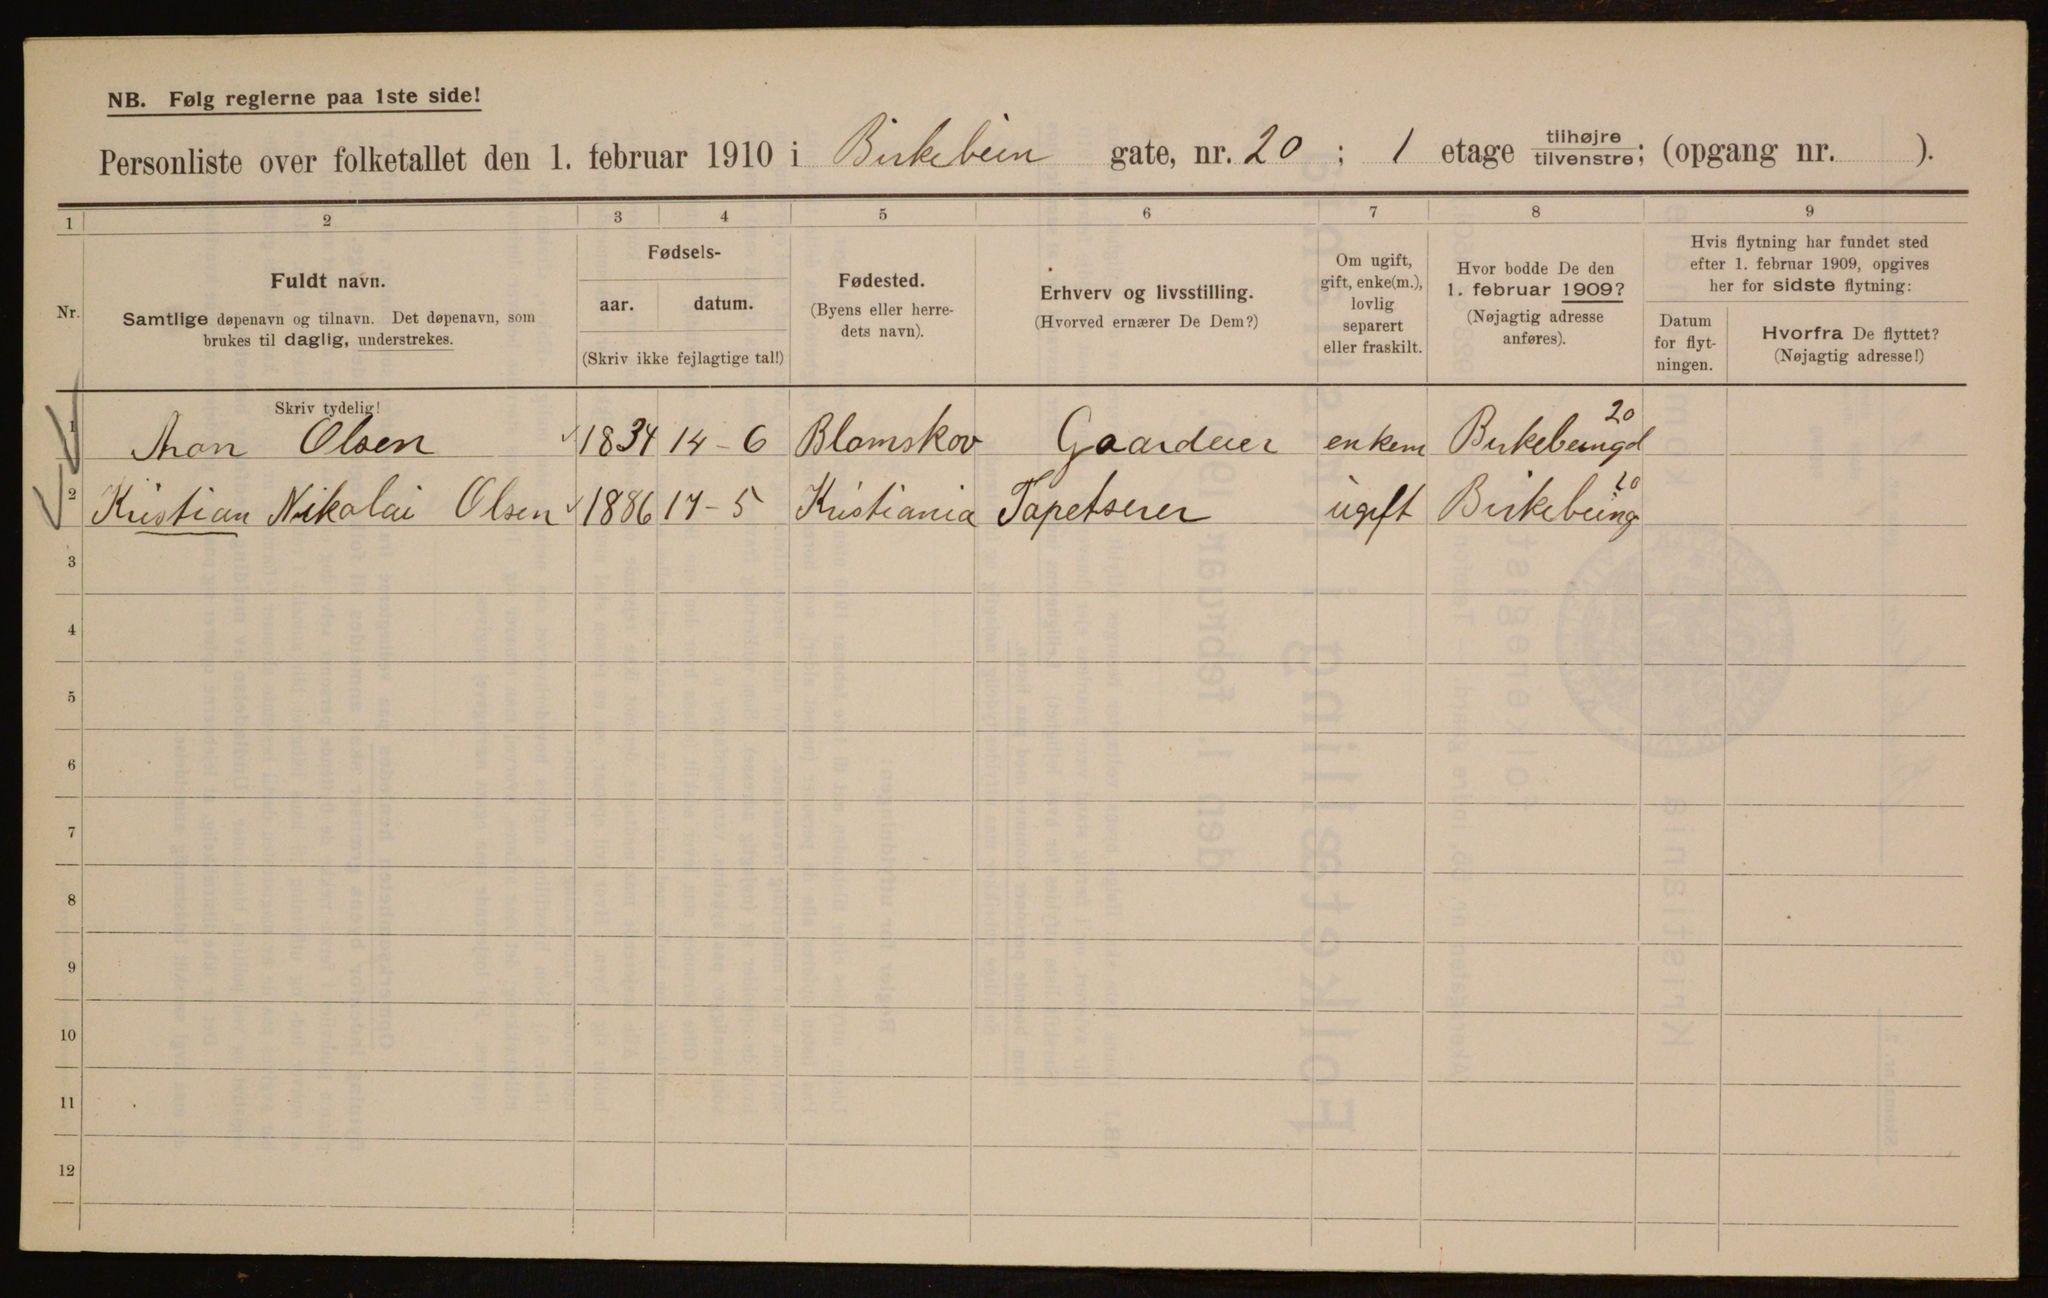 NB. Følg reglerne paa 1ste side!
Personliste over folketallet den 1. februar 1910 i Birkebein gate, nr. 20 ; 1 etage tilhøjre/tilvenstre; (opgang nr. ).
1 2 3 4 5 6 7 8 9
Nr.
Fuldt navn.
Samtlige døpenavn og tilnavn. Det døpenavn, som
brukes til daglig, understrekes.
Fødsels-
aar. datum.
(Skriv ikke fejlagtige tal!)
Fødested.
(Byens eller herre-
dets navn).
Erhverv og livsstilling.
(Hvorved ernærer De Dem?)
Om ugift,
gift, enke(m.),
lovlig
separert
eller fraskilt.
Hvor bodde De den
1. februar 1909?
(Nøjagtig adresse
anføres).
Hvis flytning har fundet sted
efter 1. februar 1909, opgives
her for sidste flytning:
Datum
for flyt-
ningen.
Hvorfra De flyttet?
(Nøjagtig adresse!)
Skriv tydelig!
1 Aron Olsen 1834 14-6 Blomskov Gaardeier enkem Birkebeingd 20
2 Kristian Nikolai Olsen 1886 17-5 Kristiania Tapetserer ugift Birkebeing 20
3
4
5
6
7
8
9
10
11
12